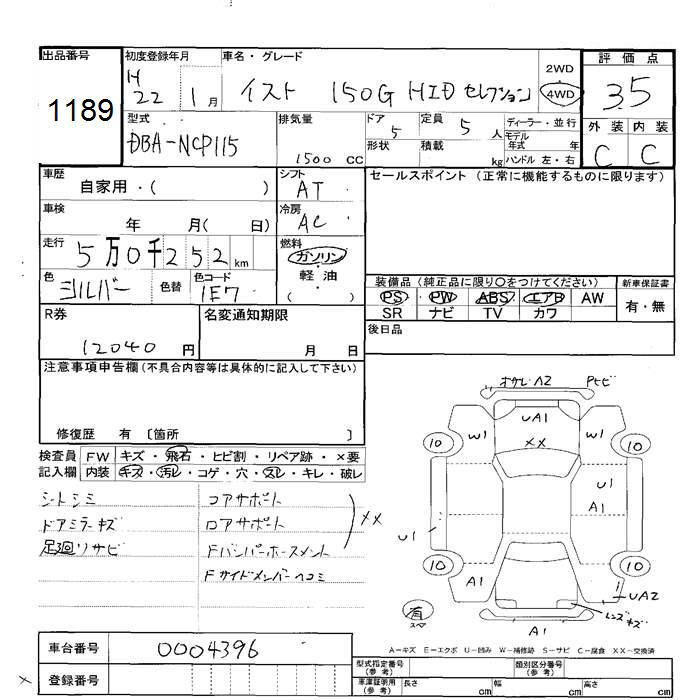 出品番号 初度登録年月 車名・グレード 評価点
1189 H22 1月 イスト 150G HID セレクション 2WD 4WD 35
型式 排気量 ドア 定員 ディーラー・並行 外装 内装
DBA-NCP115 1500 CC 5 5人 モデル年式 年 C C
形状 積載 kg ハンドル 左・右
車歴 自家用・( ) シフト AT セールスポイント (正常に機能するものに限ります)
車検 年 月( 日) 冷房 AC
走行 5万0千252km 燃料 ガソリン・軽油 ( )
色 シルバー 色替 色コード 1E7
装備品 (純正品に限り○をつけてください) 新車保証書
PS PW ABS エアB AW 有・無
SR ナビ TV カワ
R券 12040円 名変通知期限 月 日 後日品
注意事項申告欄(不具合内容等は具体的に記入して下さい)
修復歴 有 〔箇所 〕
検査員 FW キズ・飛石・ヒビ割・リペア跡・×要
記入欄 内装 キズ・汚レ・コゲ・穴・スレ・キレ・破レ
シートシミ コアサポート
ドアミラーキズ ロアサポート XX
足廻リサビ Fバンパーホースメント
Fサイドメンバーヘコミ
オサレA2 Pヒビ
UA1
10 W1 XX W1 10
U1
A1
U1
10 A1 10
UA2
有 スペア レンズキズ
A1
A-キズ E-エクボ U-凹み W-補修跡 S-サビ C-腐食 XX-交換済
車台番号 0004396
登録番号
型式指定番号(参考) 類別区分番号(参考)
車庫証明用(参考) 長さ cm 幅 cm 高さ cm